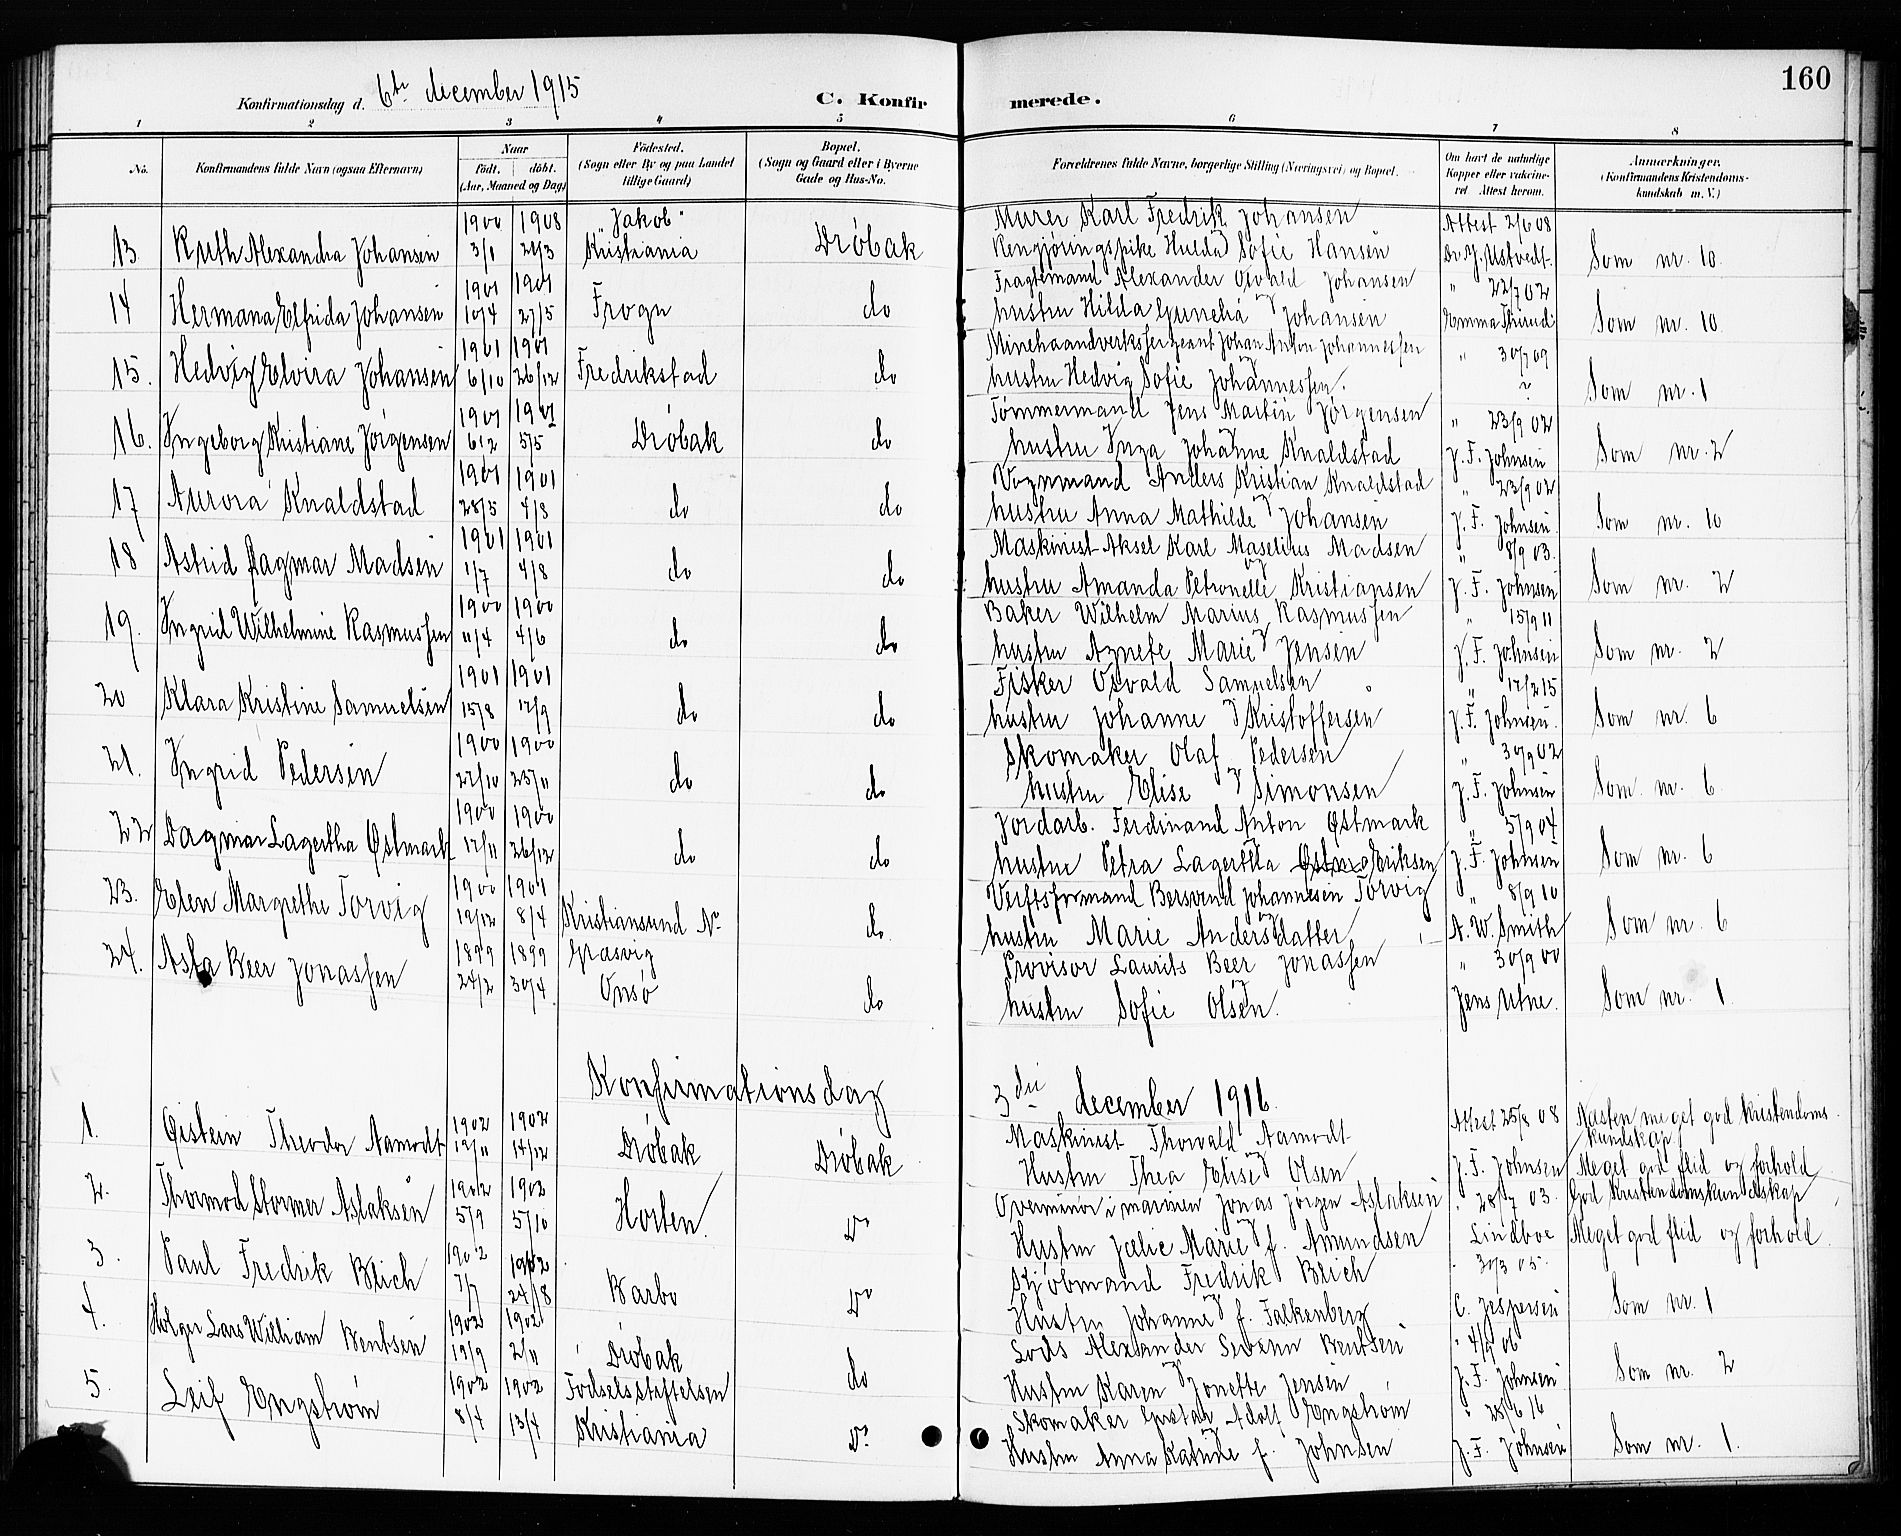 160
Konfirmationsdag d. 6te december 1915
C. Konfirmerede.
1 2 3 4 5 6 7 8
No. Konfirmandens fulde Navn (ogsaa Efternavn) Naar født. døbt. (Aar, Maaned og Dag) Fødested. (Sogn eller By og paa Landet tillige Gaard) Bopæl. (Sogn og Gaard eller i Byerne Gade og Hus-No. Forældrenes fulde Navne, borgerlige Stilling (Næringsvei) og Bopæl. Om havt de naturlige Kopper eller vaccineret Attest herom. Anmærkninger. (Konfirmandens Kristendomskundskab m. V.)
1900 1908 "Jakob" Murer Karl Fredrik Johansen Attest 2/6 08
13. Ruth Alexandra Johansen 3/1 21/3 Kristiania Drøbak Rengjøringspike Hulda Sofie Hansen Dr. Y. Ustvedt. Som nr. 10.
1901 1901 Fragtemand Alexander Osvald Johansen " 22/7 02
14 Hermana Elfrida Johansen 10/4 27/5 Frogn do hustru Hilda Gunelia Johansen Emma Som nr. 10.
1901 1901 Minehaandverkssergeant Johan Anton Johannessen " 30/7 09
15. Hedvig Elvira Johansen 6/10 26/12 Fredrikstad do hustru Hedvig Sofie Johannessen. ? Som nr. 1
1901 1902 Tømmermand Jens Martin Jørgensen " 23/9 02
16. Ingeborg Kristiane Jørgensen 6/2 5/5 Drøbak do hustru Inga Johanne Knaldstad J. F. Johnsen Som nr. 2
1901 1901 Vognmand Anders Kristian Knaldstad " 23/9 02
17 Aurora Knaldstad 28/5 4/8 do do hustru Anna Mathilde Johansen J. F. Johnsen. Som nr. 10
1901 1901 Maskinist Aksel Karl Maselius Madsen " 8/9 03.
18 Astrid Dagmar Madsen 1/7 4/8 do do hustru Amanda Petronelle Kristiansen J. F. Johnsen Som nr. 2
1900 1900 Baker Wilhelm Marius Rasmussen " 15/9 11
19. Ingrid Wilhelmine Rasmussen 11/4 4/6 do do hustru Agnete Marie Jensen J. F. Johnsen Som nr. 2
1901 1901 Fisker Osvald Samuelsen " 17/2 15
20 Klara Kristine Samuelsen 15/8 17/9 do do hustru Johanne Kristoffersen J. F. Johnsen. Som nr. 6
1900 1900 Skomaker Olaf Pedersen " 30/9 02
21. Ingrid Pedersen 27/10 25/11 do do hustru Elise Simonsen J. F. Johnsen Som nr. 6.
1900 1900 Jordarb. Ferdinand Anton Østmark " 5/9 04
22 Dagmar Lagertha Østmark 17/11 26/12 do do hustru Petra Lagertha Østm Eriksen J. F. Johnsen Som nr. 6
1900 1901 Verftsformand Bersvend Johannesen Torvig " 8/9 10
23. Elen Margrethe Torvig 12/12 8/4 Kristiansund N. do. hustru Marie Andersdatter A. W. Smith Som nr. 6
1899 1899 Græsvig Provisor Laurits Beer Jonassen " 30/9 00
24. Asta Beer Jonassen 24/2 30/4 Onsø do hustru Sofie Olsen. Jens Utne. Som nr. 1.
Konfirmationsdag 3die december 1916.
1902 1902 Maskinist Thorvald Aamodt Attest 25/8 08 Næsten meget god kristendomskundskap
1. Øistein Theodor Aamodt 12/11 14/12 Drøbak Drøbak Hustru Thea Elise Olsen J. F. Johnsen Meget god flid og forhold
1902 1902 Overminør i marinen Jonas Jørgen Aslaksen " 28/7 03. God kristendomskundskap
2. Thormod Stormer Aslaksen 5/9 5/10 Horten. Do Hustru Julie Marie f. Amundsen Lindboe Meget god flid og forhold.
1902 1902 Sjøbmand Fredrik Blich " 30/3 05.
3. Paul Fredrik Blich 7/7 24/8 Barbo Do Hustru Johanne f. Falkenberg C. Jespersen Som nr. 1
1902 1902 Lods Alexander Severin Bentsen " 4/9 06
4. Holger Lars William Bentsen 19/9 2/11 Drøbak do Hustru Karen Jonette Jensen J. F. Johnsen Som nr. 2
1902 1902 Fødselsstiftelsen Skomaker Gustav Adolf Engstrøm " 28/6 16
5. Leif Engstrøm 8/4 13/4 Kristiania Do. Hustru Anna Katrine f. Johnsen J. F. Johnsen Som nr. 1.